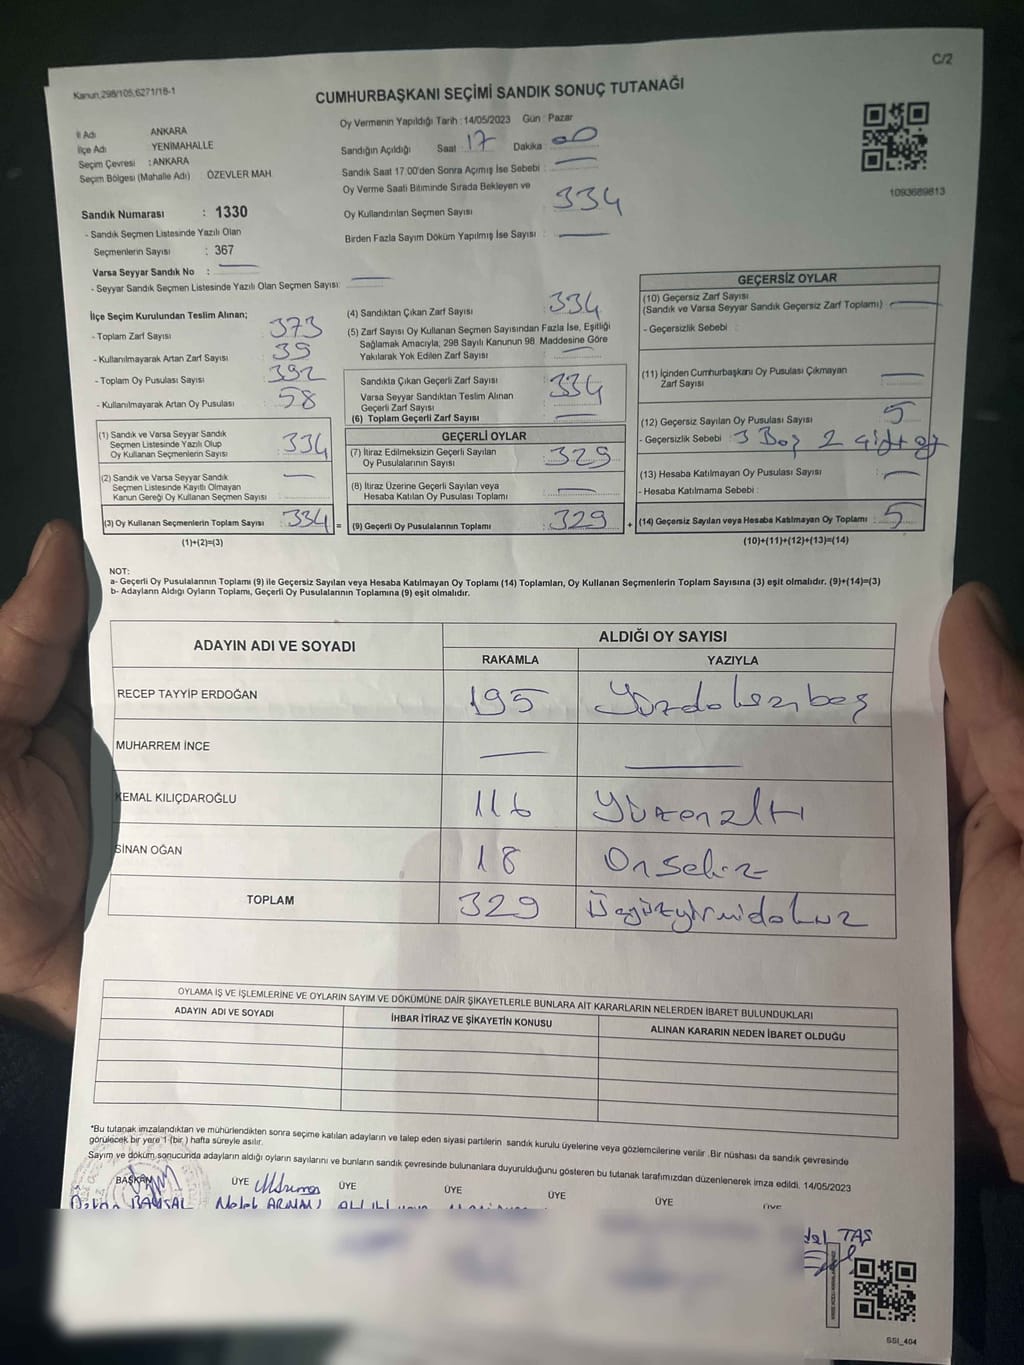 C/2
Kanun,298/105,6271/18-1
CUMHURBAŞKANI SEÇİMİ SANDIK SONUÇ TUTANAĞI
İl Adı ANKARA
İlçe Adı YENİMAHALLE
Seçim Çevresi : ANKARA
Seçim Bölgesi (Mahalle Adı) : ÖZEVLER MAH
Sandık Numarası : 1330
- Sandık Seçmen Listesinde Yazılı Olan
Seçmenlerin Sayısı : 367
Varsa Seyyar Sandık No :
- Seyyar Sandık Seçmen Listesinde Yazılı Olan Seçmen Sayısı:
Oy Vermenin Yapıldığı Tarih : 14/05/2023 Gün : Pazar
Sandığın Açıldığı Saat 17 Dakika : 00
Sandık Saat 17:00'den Sonra Açımış İse Sebebi :
Oy Verme Saati Bitiminde Sırada Bekleyen ve
Oy Kullandırılan Seçmen Sayısı : 334
Birden Fazla Sayım Döküm Yapılmış İse Sayısı :
1093689813
İlçe Seçim Kurulundan Teslim Alınan;
- Toplam Zarf Sayısı : 373
- Kullanılmayarak Artan Zarf Sayısı : 39
- Toplam Oy Pusulası Sayısı : 392
- Kullanılmayarak Artan Oy Pusulası : 58
(1) Sandık ve Varsa Seyyar Sandık
Seçmen Listesinde Yazılı Olup
Oy Kullanan Seçmenlerin Sayısı : 334
(2) Sandık ve Varsa Seyyar Sandık
Seçmen Listesinde Kayıtlı Olmayan
Kanun Gereği Oy Kullanan Seçmen Sayısı :
(3) Oy Kullanan Seçmenlerin Toplam Sayısı : 334 =
(1)+(2)=(3)
(4) Sandıktan Çıkan Zarf Sayısı : 334
(5) Zarf Sayısı Oy Kullanan Seçmen Sayısından Fazla İse, Eşitliği
Sağlamak Amacıyla, 298 Sayılı Kanunun 98. Maddesine Göre
Yakılarak Yok Edilen Zarf Sayısı :
Sandıkta Çıkan Geçerli Zarf Sayısı : 334
Varsa Seyyar Sandıktan Teslim Alınan
Geçerli Zarf Sayısı :
(6) Toplam Geçerli Zarf Sayısı :
GEÇERLİ OYLAR
(7) İtiraz Edilmeksizin Geçerli Sayılan
Oy Pusulalarının Sayısı : 329
(8) İtiraz Üzerine Geçerli Sayılan veya
Hesaba Katılan Oy Pusulası Toplamı :
(9) Geçerli Oy Pusulalarının Toplamı : 329 +
GEÇERSİZ OYLAR
(10) Geçersiz Zarf Sayısı
(Sandık ve Varsa Seyyar Sandık Geçersiz Zarf Toplamı) :
- Geçersizlik Sebebi :
(11) İçinden Cumhurbaşkanı Oy Pusulası Çıkmayan
Zarf Sayısı :
(12) Geçersiz Sayılan Oy Pusulası Sayısı : 5
- Geçersizlik Sebebi : 3 Boş 2 çift oy
(13) Hesaba Katılmayan Oy Pusulası Sayısı :
- Hesaba Katılmama Sebebi :
(14) Geçersiz Sayılan veya Hesaba Katılmayan Oy Toplamı : 5
(10)+(11)+(12)+(13)=(14)
NOT:
a- Geçerli Oy Pusulalarının Toplamı (9) ile Geçersiz Sayılan veya Hesaba Katılmayan Oy Toplamı (14) Toplamları, Oy Kullanan Seçmenlerin Toplam Sayısına (3) eşit olmalıdır. (9)+(14)=(3)
b- Adayların Aldığı Oyların Toplamı, Geçerli Oy Pusulalarının Toplamına (9) eşit olmalıdır.
ADAYIN ADI VE SOYADI ALDIĞI OY SAYISI
RAKAMLA YAZIYLA
RECEP TAYYİP ERDOĞAN 195 Yüzdoksanbeş
MUHARREM İNCE
KEMAL KILIÇDAROĞLU 116 Yüzonaltı
SİNAN OĞAN 18 Onsekiz
TOPLAM 329 Üçyüzyirmidokuz
OYLAMA İŞ VE İŞLEMLERİNE VE OYLARIN SAYIM VE DÖKÜMÜNE DAİR ŞİKAYETLERLE BUNLARA AİT KARARLARIN NELERDEN İBARET BULUNDUKLARI
ADAYIN ADI VE SOYADI İHBAR İTİRAZ VE ŞİKAYETİN KONUSU ALINAN KARARIN NEDEN İBARET OLDUĞU
*Bu tutanak imzalandıktan ve mühürlendikten sonra seçime katılan adayların ve talep eden siyasi partilerin sandık kurulu üyelerine veya gözlemcilerine verilir. Bir nüshası da sandık çevresinde
görülecek bir yere 1 (bir ) hafta süreyle asılır.
Sayım ve döküm sonucunda adayların aldığı oyların sayılarını ve bunların sandık çevresinde bulunanlara duyurulduğunu gösteren bu tutanak tarafımızdan düzenlenerek imza edildi. 14/05/2023
BAŞKAN ÜYE ÜYE ÜYE ÜYE ÜYE ÜYE
BAYSAL Melek
TAŞ
SSI_404